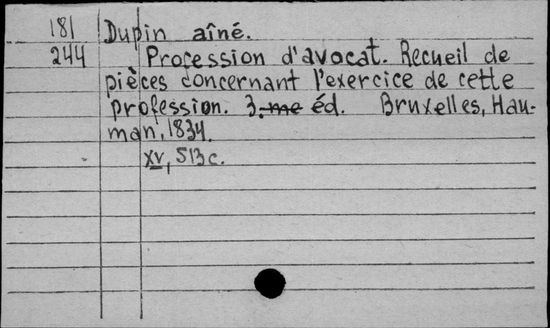 181 Dupin aîné.
244 Profession d'avocat. Recueil de
pièces concernant l'exercice de cette
profession. 3.me éd. Bruxelles, Hau-
man, 1834.
XV, 513 c.